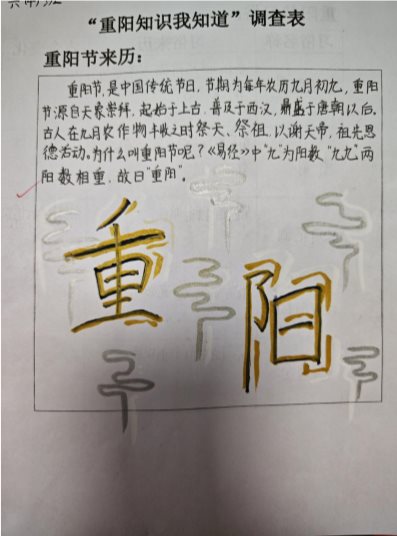 “重阳知识我知道”调查表
重阳节来历：
重阳节，是中国传统节日，节期为每年农历九月初九，重阳
节源自天象崇拜，起始于上古，普及于西汉，鼎盛于唐朝以后。
古人在九月农作物丰收之时祭天、祭祖，以谢天帝、祖先恩
德活动。为什么叫重阳节呢？《易经》中“九”为阳数“九九”两
阳数相重，故曰“重阳”。
重
阳